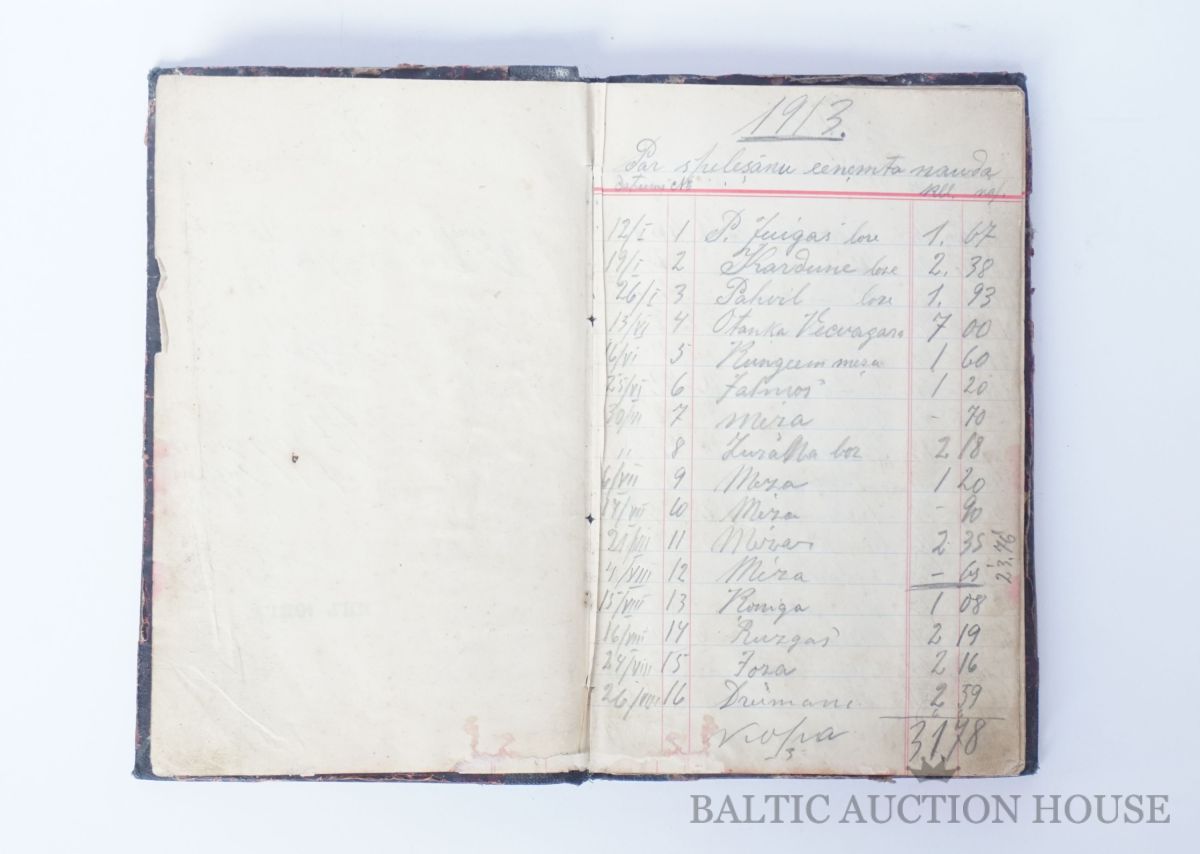 1913.
Par spelešanu eeņemta nauda
Datums № rbl. kap.
12/I 1 P. lose 1. 67
19/I 2 Kardune lose 2. 38
26/I 3 Pahvil lose 1. 93
13/VI 4 Otanka Vecvagara 7 00
16/VI 5 meža 1 60
25/VI 6 1 20
30/VI 7 Meža - 70
" 8 2 18
6/VII 9 Meža 1 20
14/VII 10 Meža - 90
21/VII 11 2 35
4/VIII 12 Meža - 65
23,76
15/VIII 13 Koniga 1 08
16/VIII 14 Ruzgas 2 19
24/VIII 15 Joza 2 16
26/VIII 16 Drumani 2 59
31,78
BALTIC AUCTION HOUSE